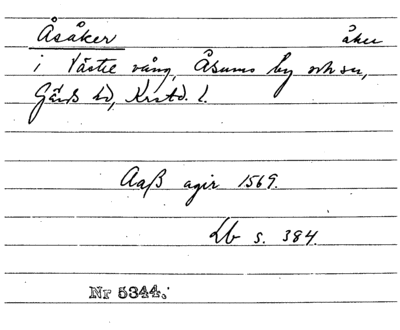 Åsåker åker
i Västre vång, Åsums by och sn,
Gärds hd, Krstd. l.
Aaß agir 1569.
Lb s. 384.
Nr 5344.